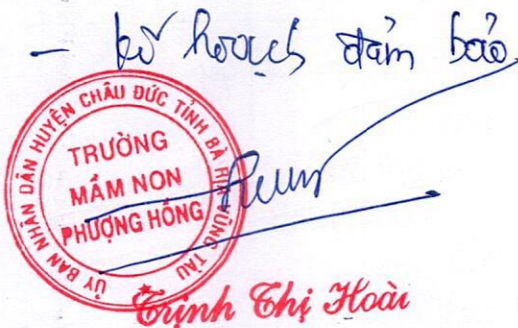 - kế hoạch đảm bảo
ỦY BAN NHÂN DÂN HUYỆN CHÂU ĐỨC TỈNH BÀ RỊA VŨNG TÀU
TRƯỜNG
MẦM NON
PHƯỢNG HỒNG
Trịnh Thị Hoài